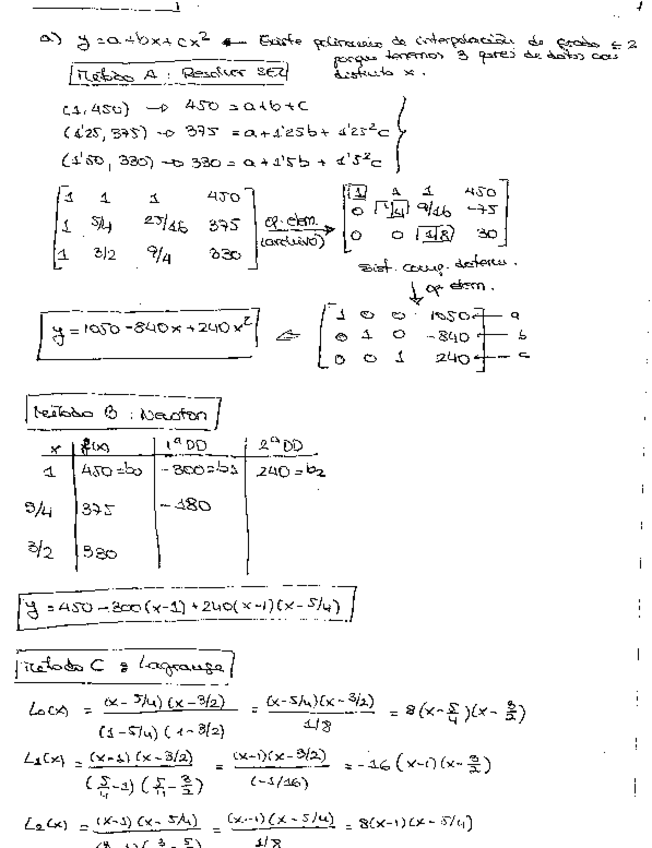 a) y = a + bx + cx² ← Existe polinomio de interpolación de grado ≤ 2
porque tenemos 3 pares de datos con
distinto x.
Método A : Resolver SEL
(1, 450) → 450 = a + b + c
(1'25, 375) → 375 = a + 1'25b + 1'25²c
(1'50, 330) → 330 = a + 1'5b + 1'5²c
1 1 1 450
1 5/4 25/16 375
1 3/2 9/4 330
op. elem.
(archivo)
1 1 1 450
0 1/4 9/16 -75
0 0 1/8 30
Sist. comp. determ.
op. elem.
1 0 0 1050 — a
0 1 0 -840 — b
0 0 1 240 — c
y = 1050 - 840x + 240x²
Método B : Newton
x f(x) 1ª DD 2ª DD
1 450 = b0 -300 = b1 240 = b2
5/4 375 -180
3/2 330
y = 450 - 300(x-1) + 240(x-1)(x-5/4)
Método C : Lagrange
L0(x) = (x-5/4)(x-3/2) / (1-5/4)(1-3/2) = (x-5/4)(x-3/2) / 1/8 = 8(x-5/4)(x-3/2)
L1(x) = (x-1)(x-3/2) / (5/4-1)(5/4-3/2) = (x-1)(x-3/2) / (-1/16) = -16(x-1)(x-3/2)
L2(x) = (x-1)(x-5/4) = (x-1)(x-5/4) / 1/8 = 8(x-1)(x-5/4)